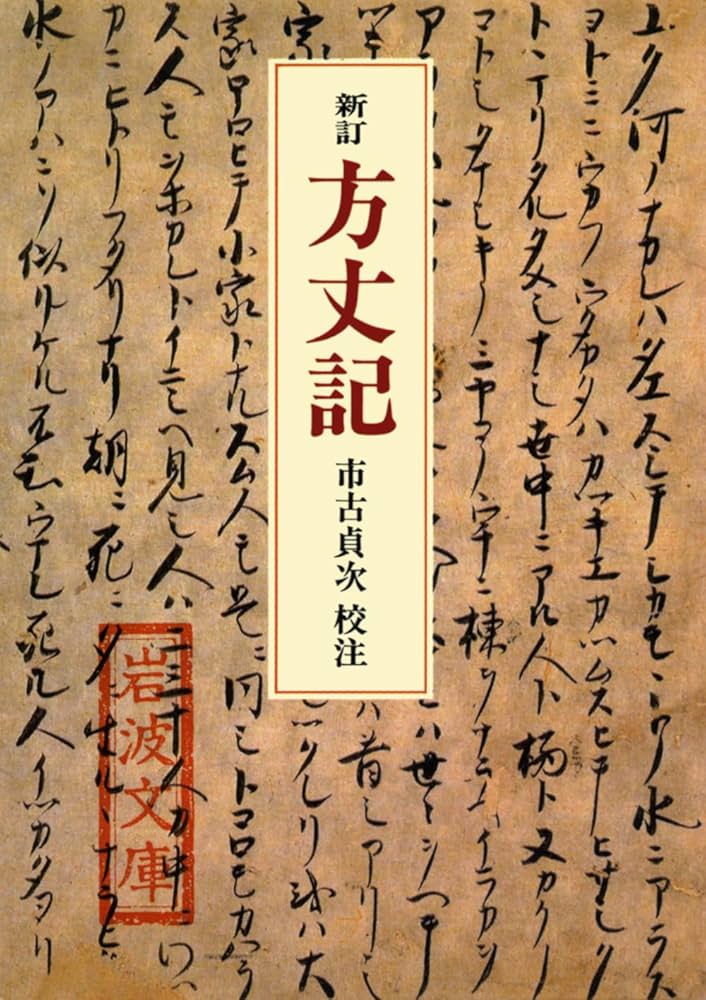 新訂
方丈記
市古貞次 校注
ユク河ノナカレハタエスシテシカモヽトノ水ニアラス
ヨトミニウカフウタカタハカツキエカツムスヒテヒサシク
トヽマリタルタメシナシ世中ニアル人ト栖ト又カクノ
コトシタマシキノミヤコノウチニ棟ヲナラヘイラカヲ
ハ世々ヲヘテ
ハ昔シアリシ
家
或ハ大
家ホロヒテ小家トナルスム人モ是ニ同シトコロモカハラ
ス人モヲホカレトイニシヘ見シ人ハ二三十人カ中ニ
カニヒトリフタリナリ朝ニ死ニ夕ニ生ルヽナラヒ
水ノアハニソ似リケル不知ウマレ死ル人イツカタヨリ
岩波文庫